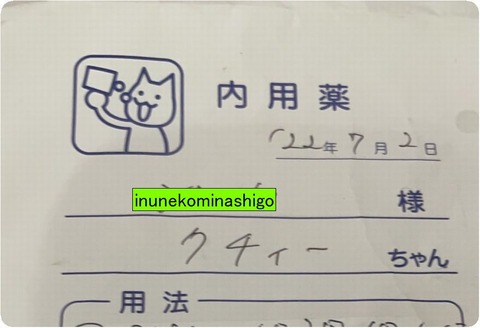 内用薬
'22年7月2日
inunekominashigo
様
クチィーちゃん
用法